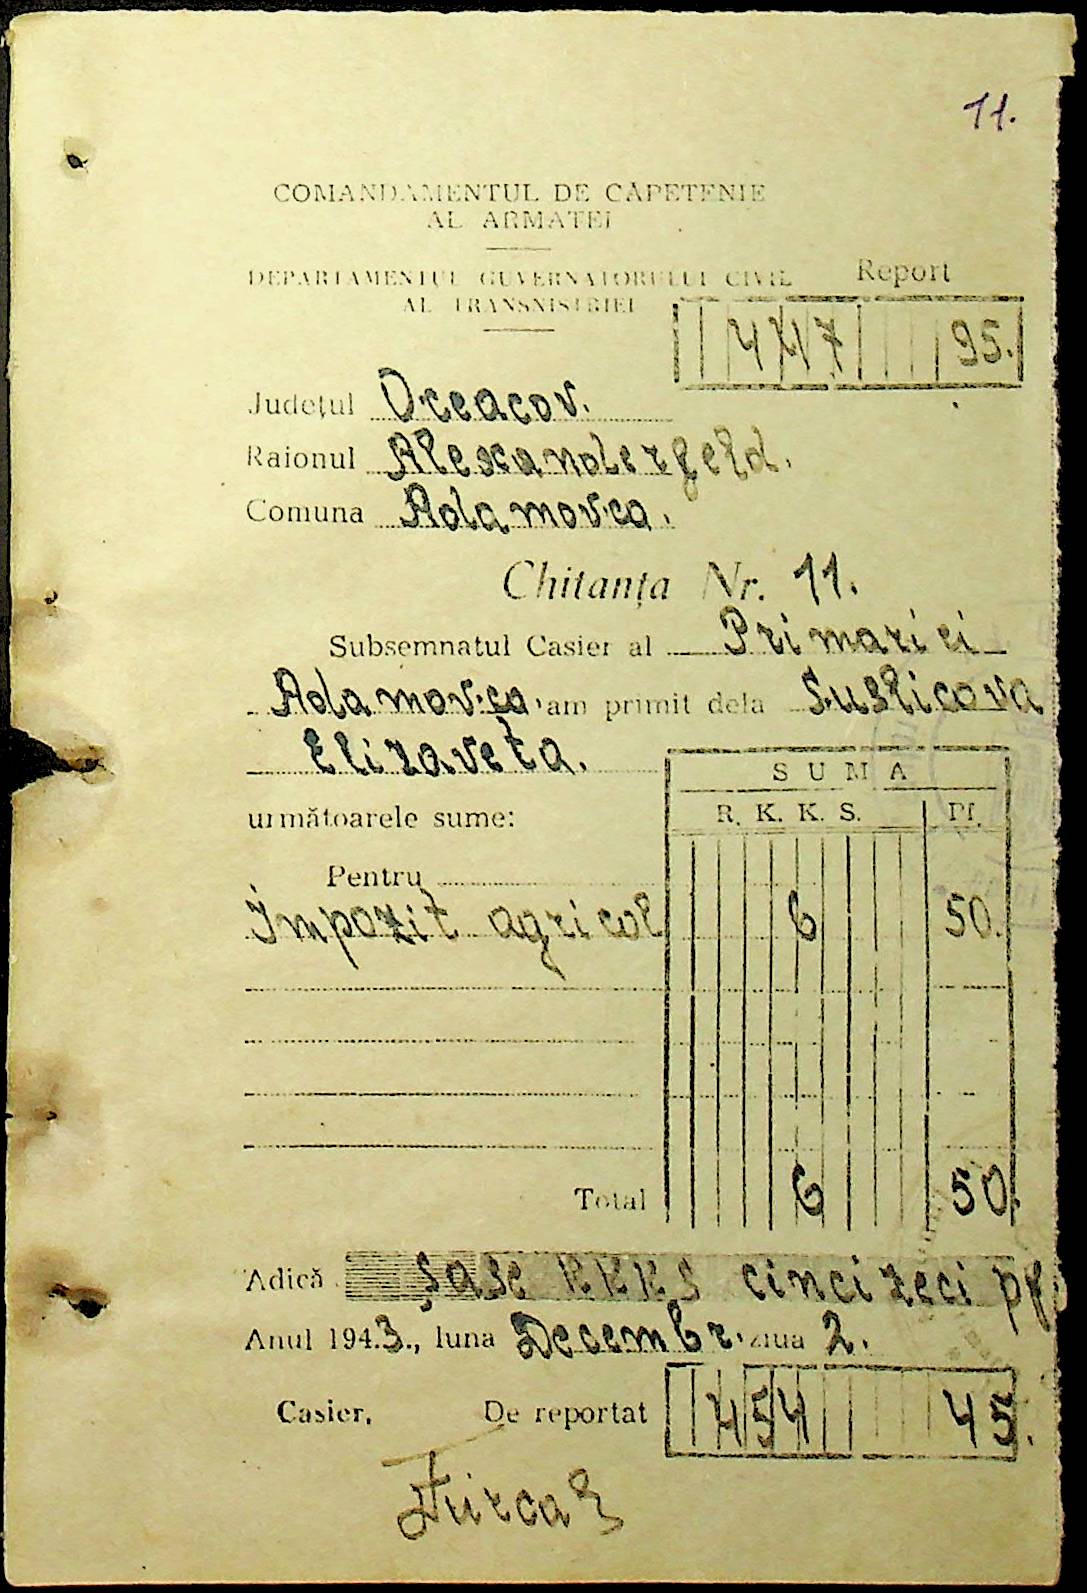 11.
COMANDAMENTUL DE CĂPETENIE
AL ARMATEI
DEPARTAMENTUL GUVERNATORULUI CIVIL
AL TRANSNISTRIEI
Report
447 95.
Județul Oceacov.
Raionul Alexanderfeld.
Comuna Adamovca.
Chitanța Nr. 11.
Subsemnatul Casier al Primariei
Adamovca, am primit dela Suslicova
Elizaveta.
următoarele sume:
SUMA
R. K. K. S. Pf.
Pentru
Impozit agricol 6 50.
Total 6 50.
Adică șase RKKS cincizeci pf
Anul 1943., luna Decembr. ziua 2.
Casier, De reportat 454 45.